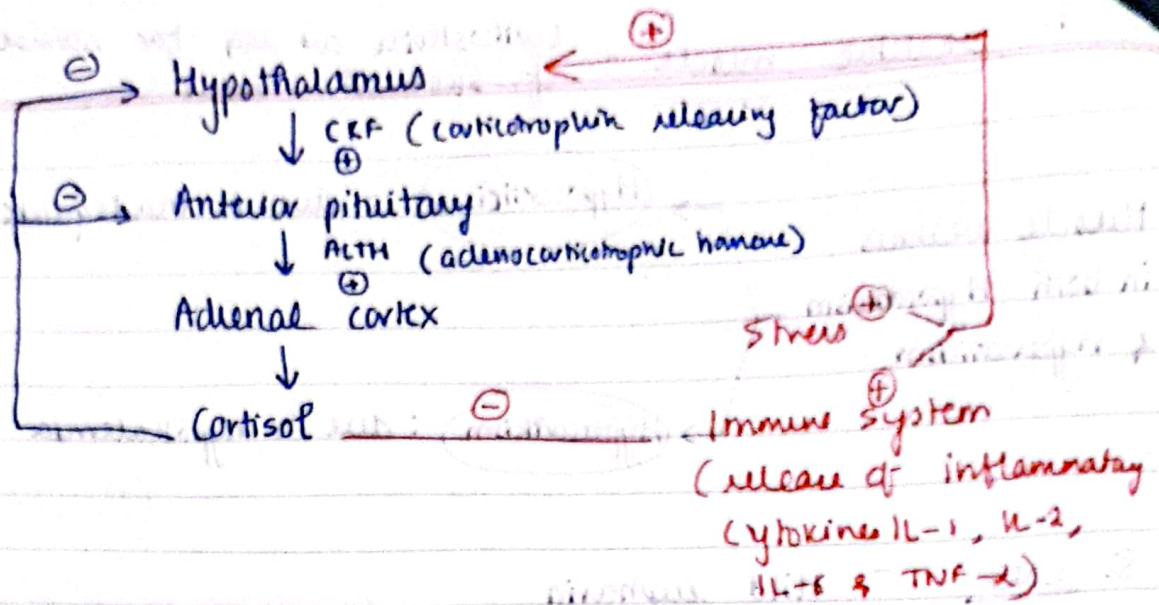 ⊕
⊖ Hypothalamus
CRF (corticotrophin releasing factor)
⊕
⊖ Anterior pituitary
ACTH (adenocorticotrophic hormone)
⊕
Adrenal cortex
Stress ⊕
⊕
Cortisol ⊖ Immune system
(release of inflammatory
cytokines IL-1, IL-2,
IL-6 & TNF-α)